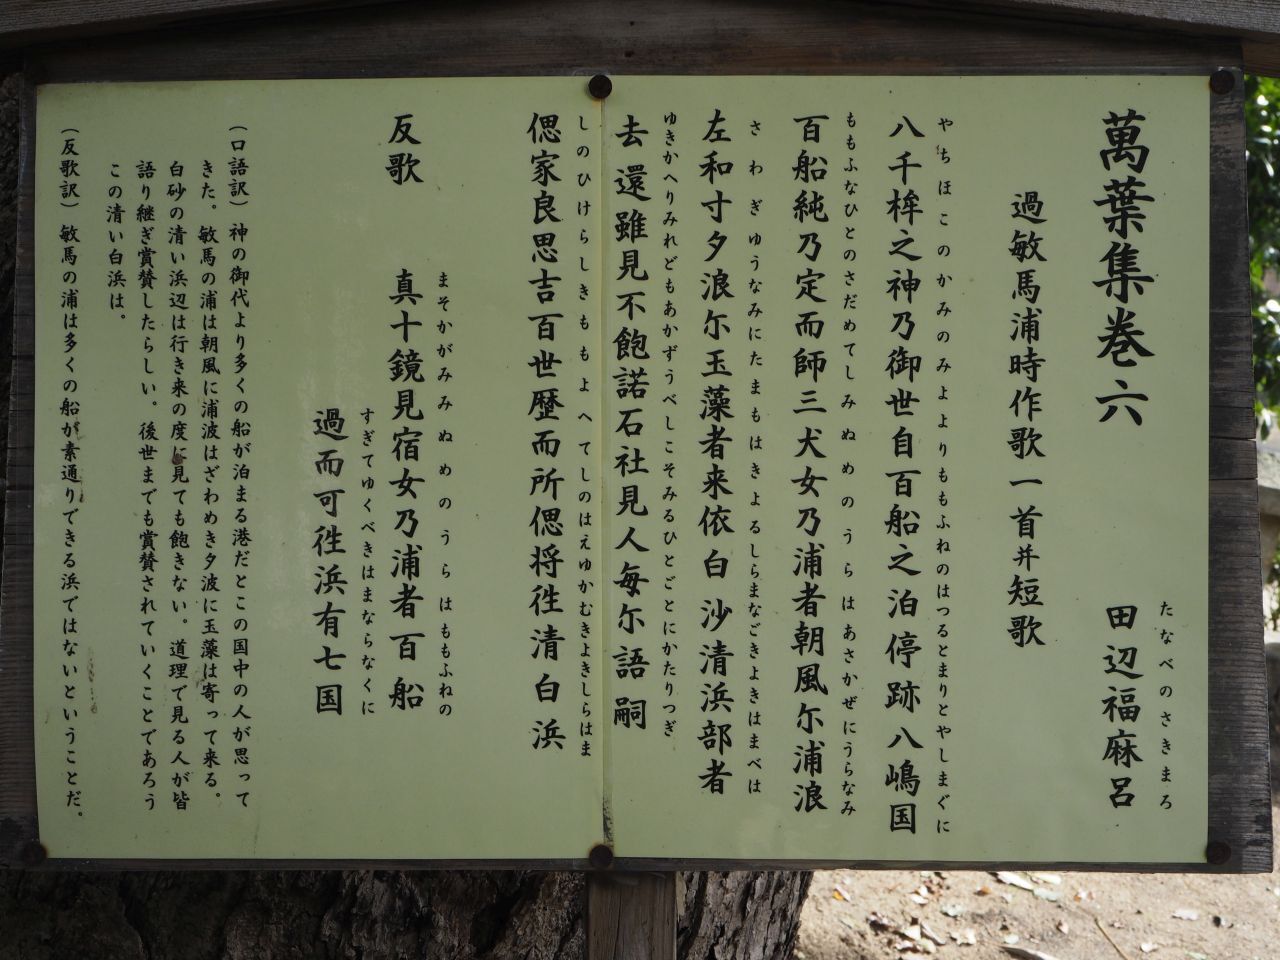 萬葉集巻六
田辺福麻呂
たなべのさきまろ
過敏馬浦時作歌一首并短歌
八千桙之神乃御世自百船之泊停跡八嶋国
やちほこのかみのみよよりももふねのはつるとまりとやしまぐに
百船純乃定而師三犬女乃浦者朝風尓浦浪
ももふなひとのさだめてしみぬめのうらはあさかぜにうらなみ
左和寸夕浪尓玉藻者来依白沙清浜部者
さわぎゆうなみにたまもはきよるしらまなごきよきはまべは
去還雖見不飽諾石社見人毎尓語嗣
ゆきかへりみれどもあかずうべしこそみるひとごとにかたりつぎ
偲家良思吉百世歴而所偲将徃清白浜
しのひけらしきももよへてしのはえゆかむきよきしらはま
反歌
真十鏡見宿女乃浦者百船
まそかがみみぬめのうらはももふねの
過而可徃浜有七国
すぎてゆくべきはまならなくに
(口語訳) 神の御代より多くの船が泊まる港だとこの国中の人が思って
きた。敏馬の浦は朝風に浦波はざわめき夕波に玉藻は寄って来る。
白砂の清い浜辺は行き来の度に見ても飽きない。道理で見る人が皆
語り継ぎ賞賛したらしい。後世までも賞賛されていくことであろう
この清い白浜は。
(反歌訳) 敏馬の浦は多くの船が素通りできる浜ではないということだ。